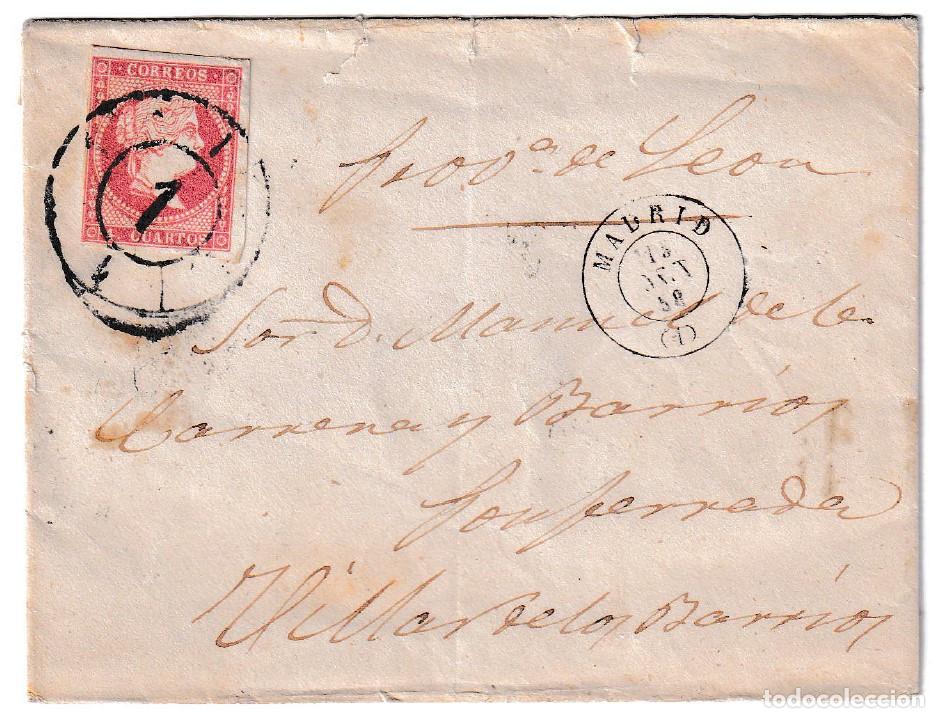 CORREOS
CUARTOS
1
Provª de Leon
MADRID
58
(1)
Sor D. Manuel de la
Carrera y Barrios
Ponferrada
Villar de los Barrios
todocoleccion